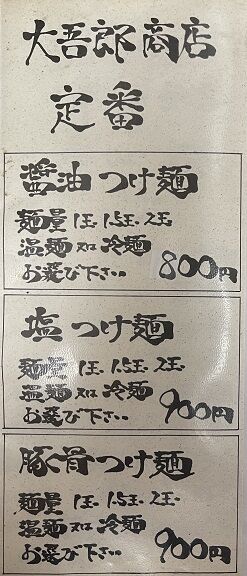 大吾郎商店
定番
醤油つけ麺
麺量 1玉・1.5玉・2玉
温麺又は冷麺
お選び下さい… 800円
塩つけ麺
麺量 1玉・1.5玉・2玉
温麺又は冷麺
お選び下さい… 900円
豚骨つけ麺
麺量 1玉・1.5玉・2玉
温麺又は冷麺
お選び下さい… 900円